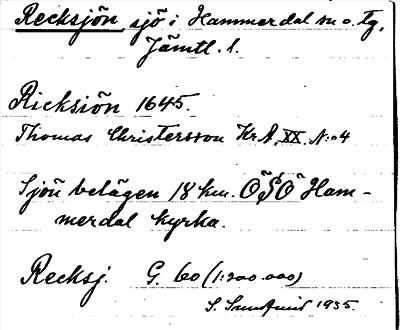 Recksjön sjö i Hammerdal sn o. tg,
Jämtl. l.
Ricksiön 1645.
Thomas Christersson Kr.A. XX. N:o 4
Sjön belägen 18 km. ÖSÖ Ham-
merdal kyrka.
Recksj. G. 60 (1:200.000)
S. 1935.